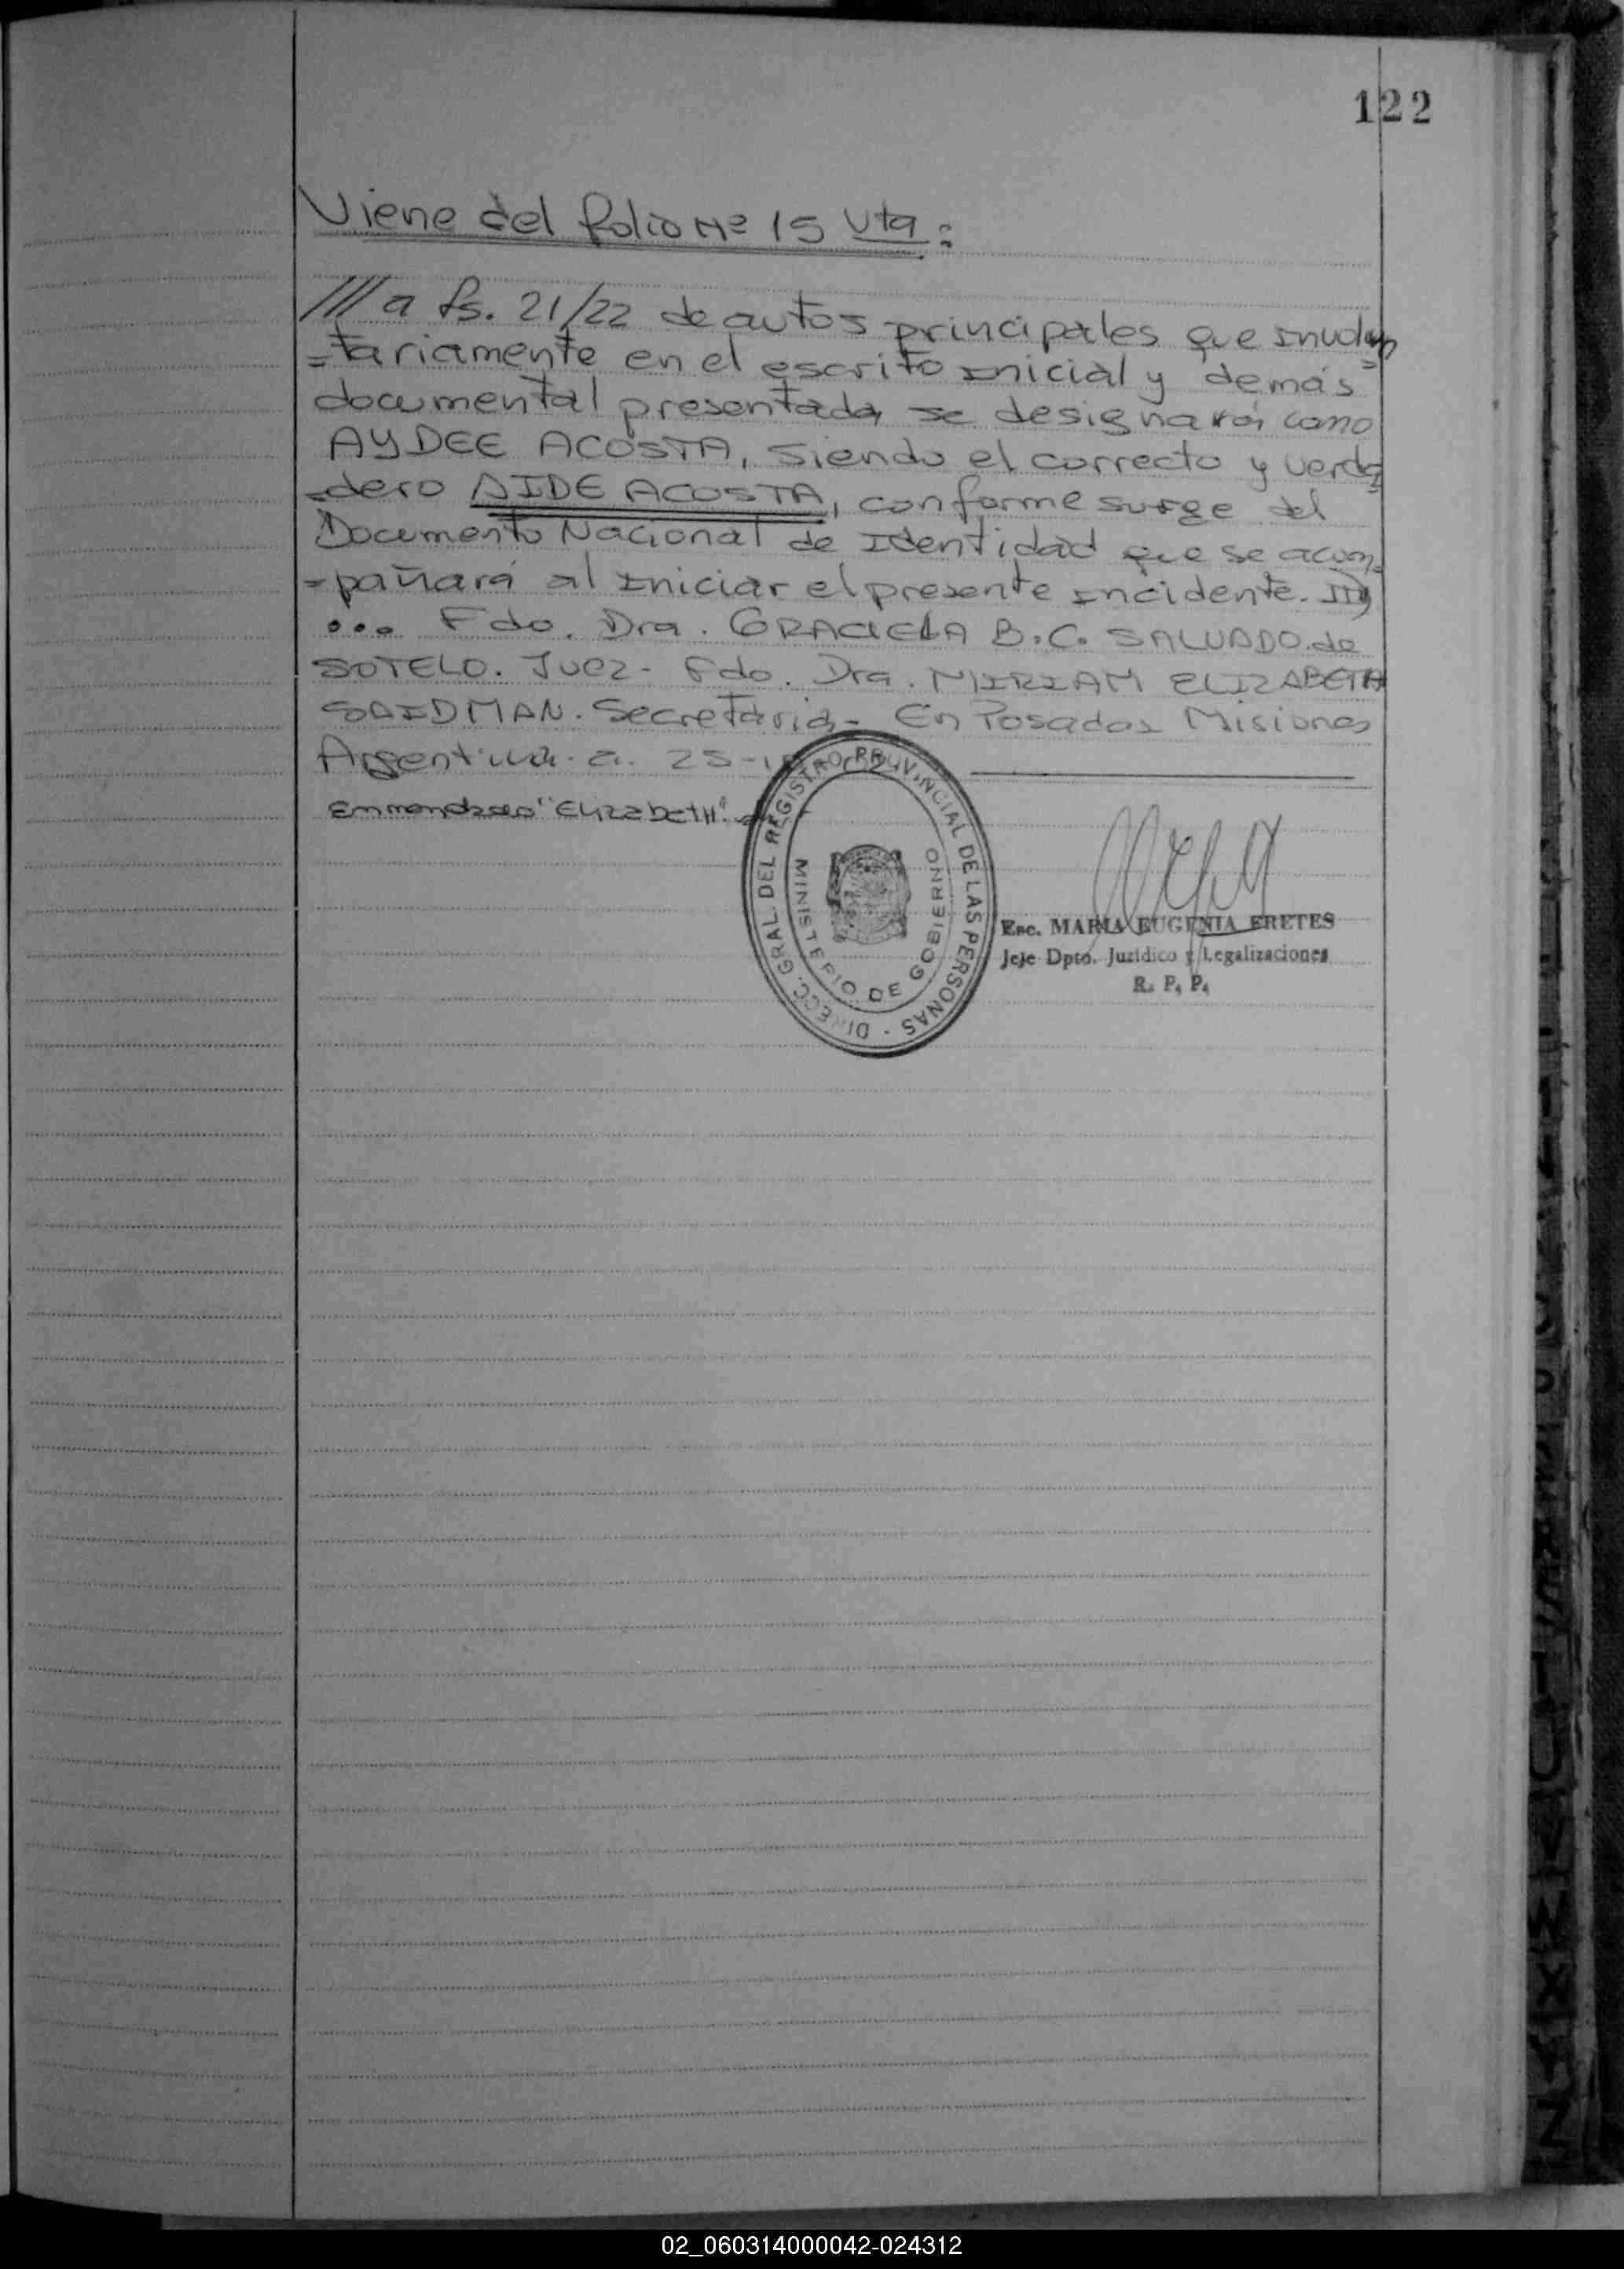 122
Viene del folio Nº 15 Vta:
/// a fs. 21/22 de autos principales que involun
=tariamente en el escrito inicial y demás
documental presentada se designará como
AYDEE ACOSTA, siendo el correcto y verda
=dero AIDE ACOSTA, conforme surge del
Documento Nacional de Identidad que se acom=
=pañará al iniciar el presente incidente. III)
... Fdo. Dra. GRACIELA B.C. SALVADO de
SOTELO. Juez- Fdo. Dra. MIRIAM ELIZABETH
SAIDMAN. Secretaria- En Posadas Misiones
Argentina. a. 25-
Enmendado "ELIZABETH".
DIRECC. GRAL. DEL REGISTRO PROVINCIAL DE LAS PERSONAS -
MINISTERIO DE GOBIERNO
Esc. MARIA EUGENIA FRETES
Jefe Dpto. Jurídico y Legalizaciones
R. P. P.
02_060314000042-024312